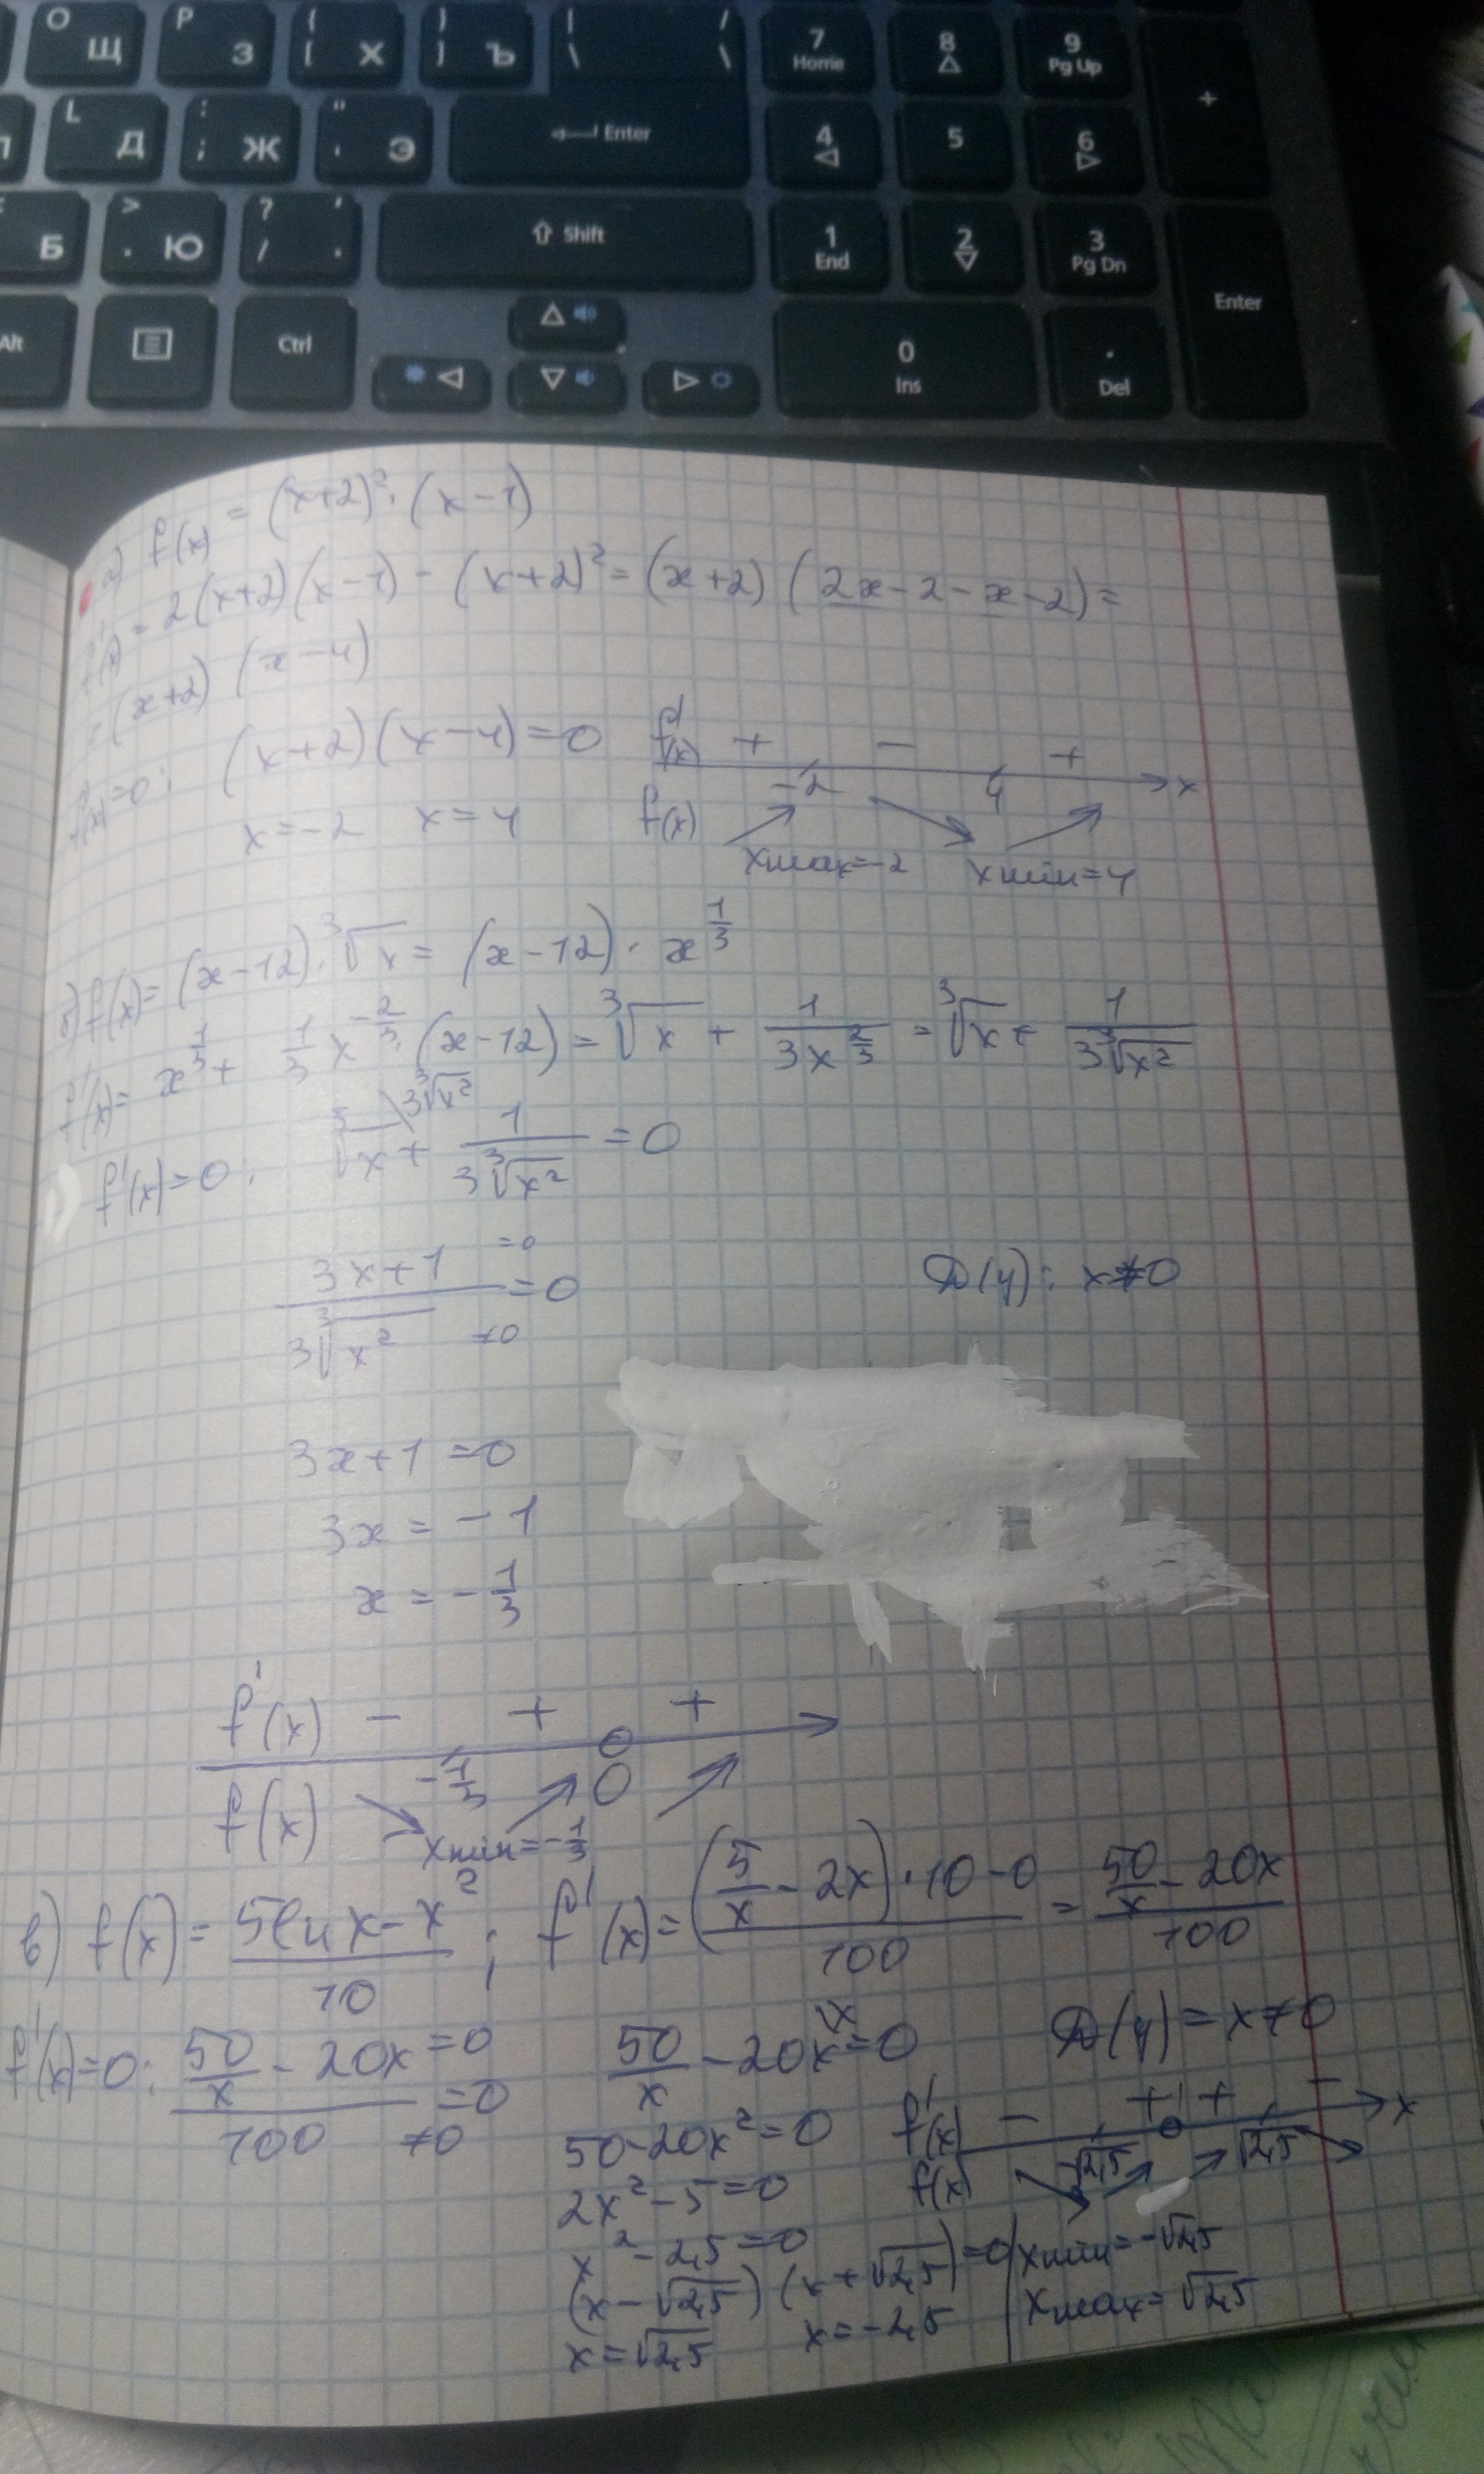 О Щ P З { [ Х } ] Ъ | \ / \ 7 Home 8 9 Pg Up +
L Д : ; Ж " ' Э Enter 4 5 6
Б > . Ю ? / , . Shift 1 End 2 3 Pg Dn
Alt Ctrl 0 Ins . Del Enter
а) f(x) = (x+2)²·(x-1)
f'(x) = 2(x+2)(x-1) - (x+2)² = (x+2)(2x-2-x-2) =
= (x+2)(x-4)
f'(x)=0: (x+2)(x-4)=0 f'(x) + - +
x=-2 x=4 -2 4 x
f(x)
xmax=-2 xmin=4
б) f(x) = (x-12)·∛x = (x-12)·x^(1/3)
f'(x) = x^(1/3) + 1/3 x^(-2/3)·(x-12) = ∛x + 1/(3x^(2/3)) = ∛x + 1/(3∛x²)
f'(x)=0: ∛x \3∛x² + 1/(3∛x²) = 0
(3x+1)/(3∛x²) =0 =0 ≠0 D(y): x≠0
3x+1=0
3x = -1
x = -1/3
f'(x) - + +
-1/3 0
f(x) xmin=-1/3
в) f(x) = (5lnx-x²)/10 ; f'(x) = ((5/x - 2x)·10-0)/100 = (50/x - 20x)/100
f'(x)=0: (50/x - 20x)/100 =0 =0 ≠0 50/x - 20x \x =0 D(y) = x≠0
50-20x²=0 f'(x) - + + - x
2x²-5=0 f(x) -√2,5 √2,5
x²-2,5=0
(x-√2,5)(x+√2,5)=0 xmin=-√2,5
x=√2,5 x=-2,5 xmax=√2,5